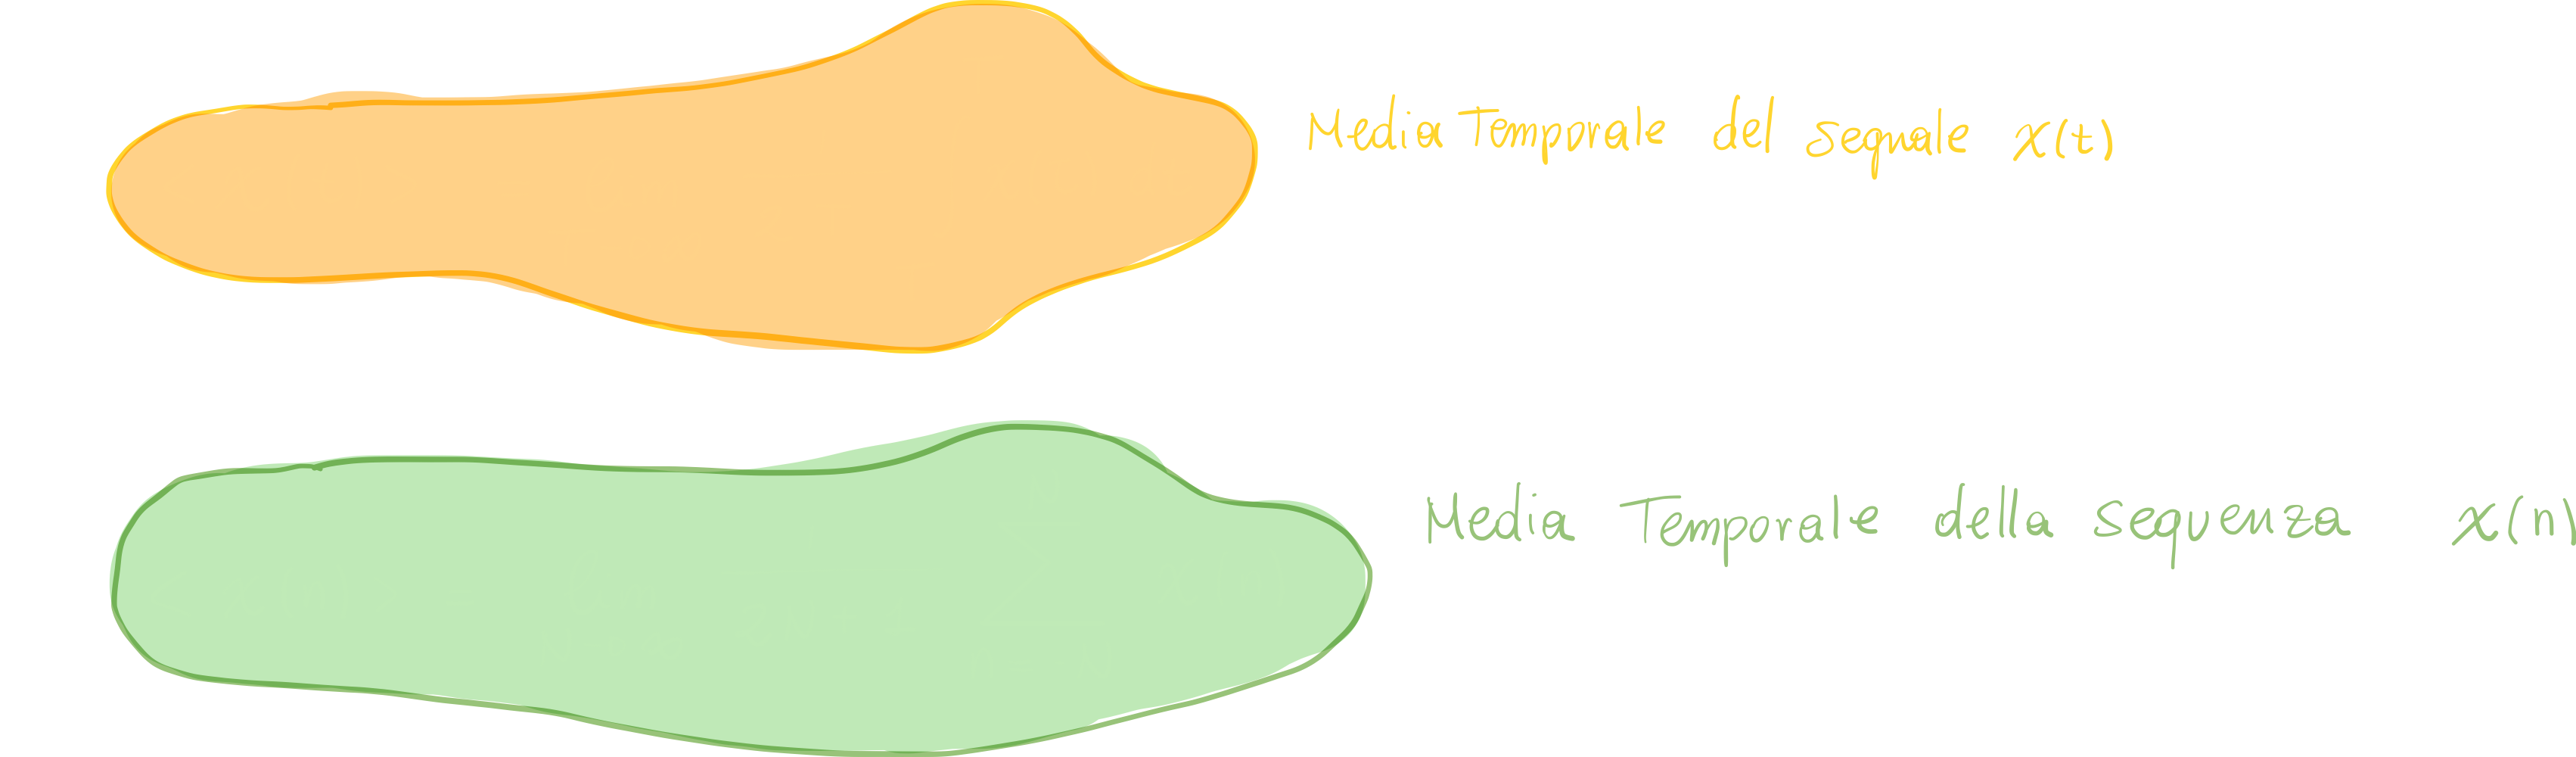 Media Temporale del segnale x(t)
Media Temporale della sequenza x(n)